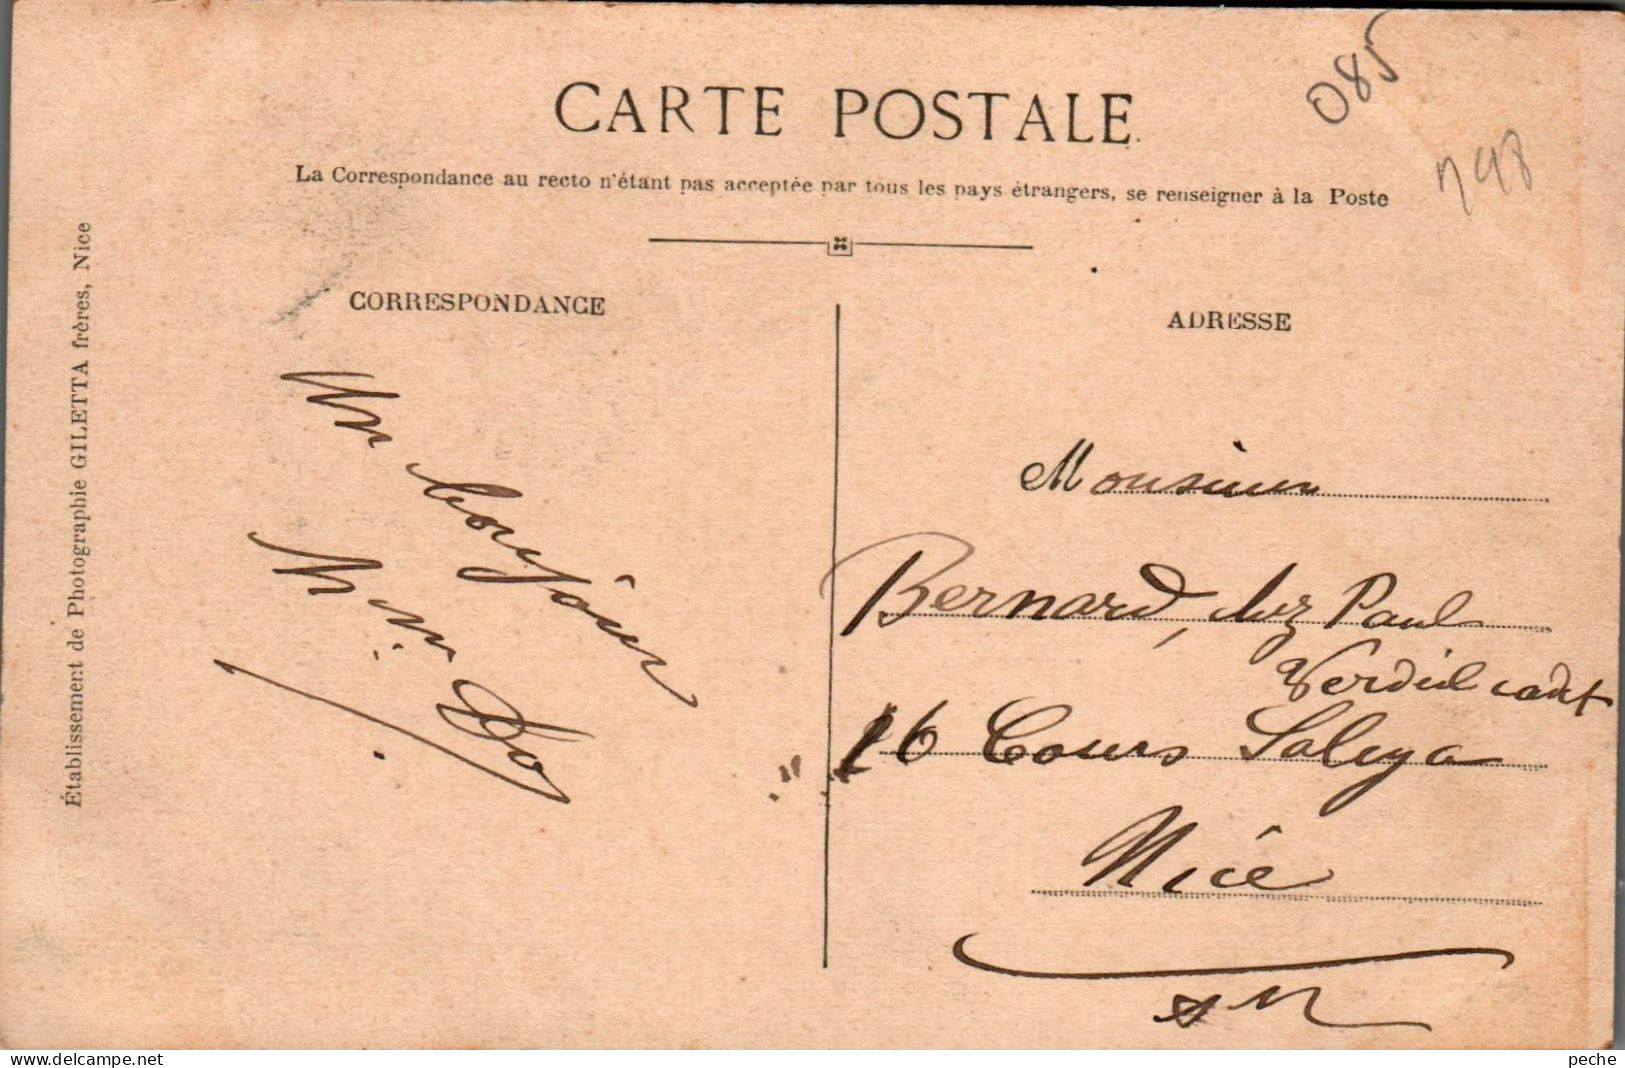 CARTE POSTALE.
085
798
La Correspondance au recto n'étant pas acceptée par tous les pays étrangers, se renseigner à la Poste
Établissement de Photographie GILETTA frères, Nice
CORRESPONDANCE
Un bonjour
ADRESSE
Monsieur
Bernard, chez Paul
Verdeil cadet
16 Cours Saleya
Nice
www.delcampe.net
peche